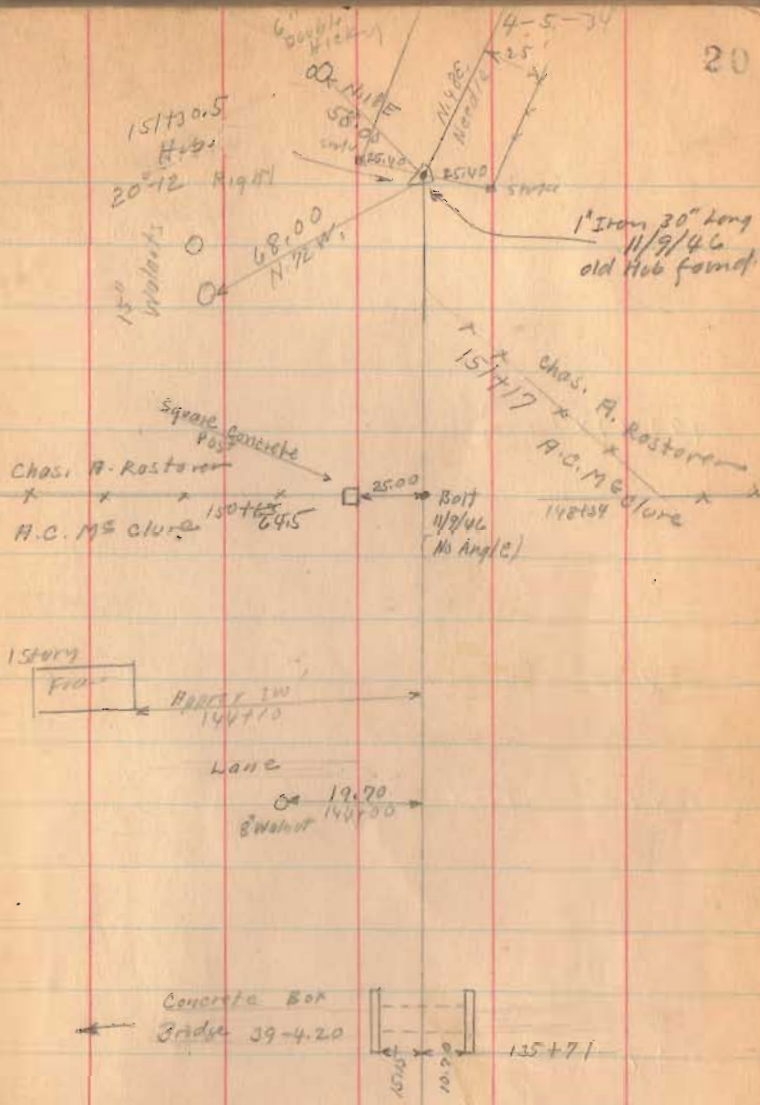 4-5-34
20
6"
Double
Hicky
N.18E
58.00
N.48E.
Needle
25'
151+30.5
Hub.
20°-12 Right
stake
25.40
25.40
stake
1" Iron 30" Long
11/9/46
old Hub found
68.00
N.72 W.
15"
Walnuts
151+17
Chas. A. Rostorer
A.C. Mc Clure
148+34
Square Concrete
Post
Chas. A. Rostorer
A.C. Mc Clure
150+
64.5
25.00
Bolt
11/9/46
(No Angle)
1 Story
Approx
144+10
Lane
19.70
144+00
8" Walnut
Concrete Box
Bridge 39-4.20
15.15
10.70
135+71